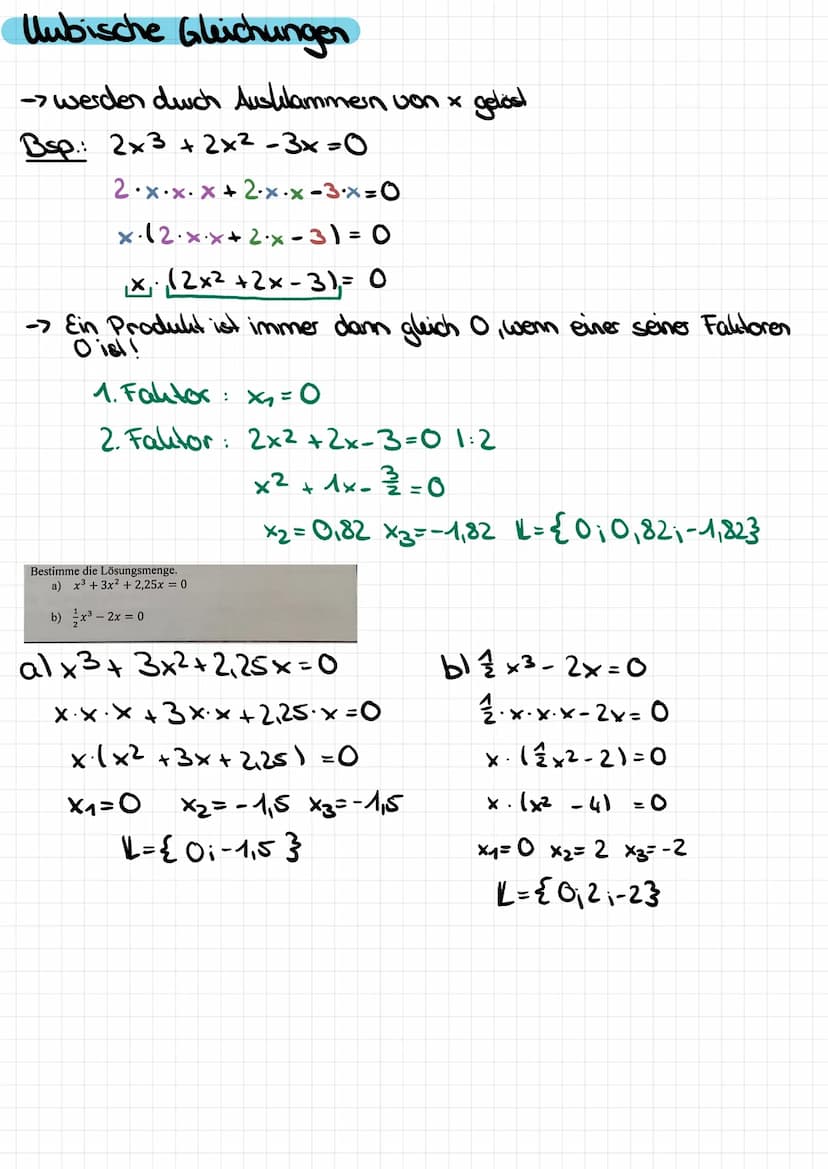 Kubische Gleichungen
-> werden durch Ausklammern von x gelöst
Bsp.: 2x³ + 2x² - 3x = 0
2·x·x·x + 2·x·x - 3·x = 0
x·(2·x·x + 2·x - 3) = 0
x·(2x² + 2x - 3) = 0
-> Ein Produkt ist immer dann gleich 0, wenn einer seiner Faktoren
0 ist!
1. Faktor: x₁ = 0
2. Faktor: 2x² + 2x - 3 = 0 |:2
x² + 1x - 3/2 = 0
x₂ = 0,82 x₃ = -1,82 L = {0; 0,82; -1,82}
Bestimme die Lösungsmenge.
a) x³ + 3x² + 2,25x = 0
b) 1/2 x³ - 2x = 0
a) x³ + 3x² + 2,25x = 0
x·x·x + 3x·x + 2,25·x = 0
x·(x² + 3x + 2,25) = 0
x₁ = 0 x₂ = -1,5 x₃ = -1,5
L = {0; -1,5}
b) 1/2 x³ - 2x = 0
1/2·x·x·x - 2x = 0
x·(1/2 x² - 2) = 0
x·(x² - 4) = 0
x₁ = 0 x₂ = 2 x₃ = -2
L = {0; 2; -2}